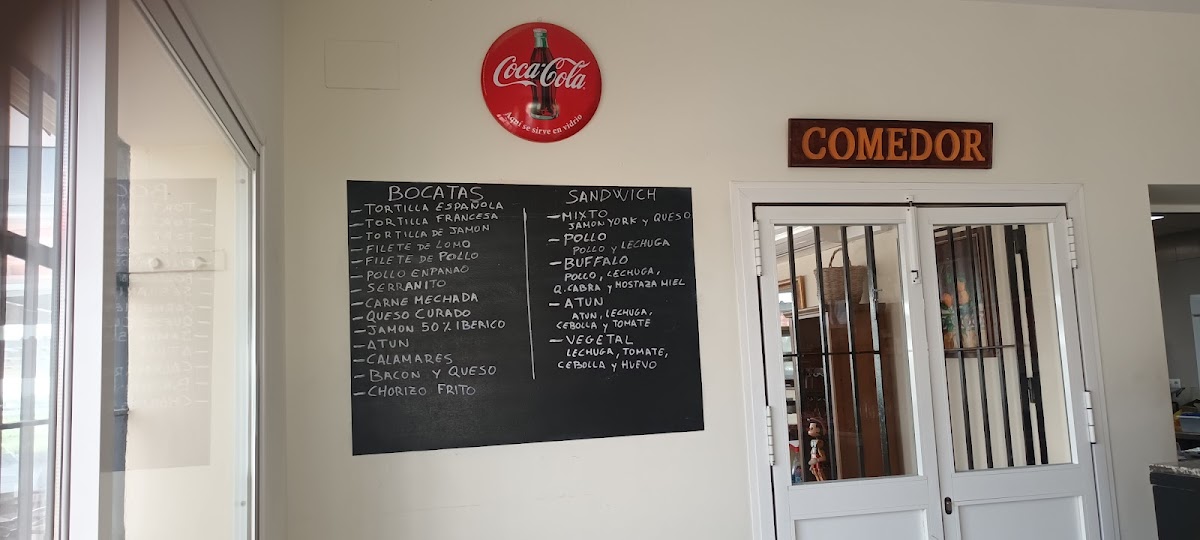 Coca-Cola
Aquí se sirve en vidrio
COMEDOR
BOCATAS
- TORTILLA ESPAÑOLA
- TORTILLA FRANCESA
- TORTILLA DE JAMON
- FILETE DE LOMO
- FILETE DE POLLO
- POLLO ENPANAO
- SERRANITO
- CARNE MECHADA
- QUESO CURADO
- JAMON 50% IBERICO
- ATUN
- CALAMARES
- BACON Y QUESO
- CHORIZO FRITO
SANDWICH
- MIXTO
JAMON YORK Y QUESO
- POLLO
POLLO Y LECHUGA
- BUFFALO
POLLO, LECHUGA,
Q. CABRA Y MOSTAZA MIEL
- ATUN
ATUN, LECHUGA,
CEBOLLA Y TOMATE
- VEGETAL
LECHUGA, TOMATE,
CEBOLLA Y HUEVO